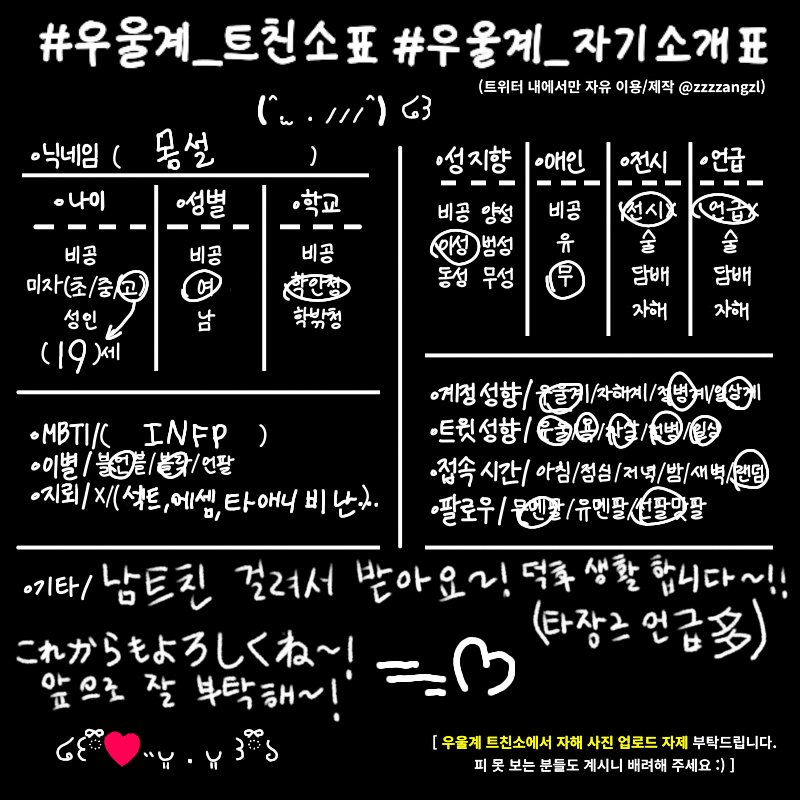 #우울계_트친소표 #우울계_자기소개표
(트위터 내에서만 자유 이용/제작 @zzzzangzl)
•닉네임 ( 몽설 )
•나이 •성별 •학교
비공 비공 비공
미자(초/중/고) 여 학안청
성인 남 학밖청
(19)세
•성지향 •애인 •전시 •언급
비공 양성 비공 전시x 언급x
이성 범성 유 술 술
동성 무성 무 담배 담배
자해 자해
•MBTI/( INFP )
•이별/블언블/블락/언팔
•지뢰/x/(섹트,에셈,타 애니 비난..).
•계정성향/우울계/자해계/정병계/일상계
•트윗성향/우울/욕/자살/정병/일상
•접속 시간/아침/점심/저녁/밤/새벽/랜덤
•팔로우/무멘팔/유멘팔/선팔맞팔
•기타/ 남트친 걸려서 받아요~! 덕후 생활 합니다~!!
(타장르 언급多)
これからもよろしくね~!
앞으로 잘 부탁해~!
[ 우울계 트친소에서 자해 사진 업로드 자제 부탁드립니다.
피 못 보는 분들도 계시니 배려해 주세요 :) ]